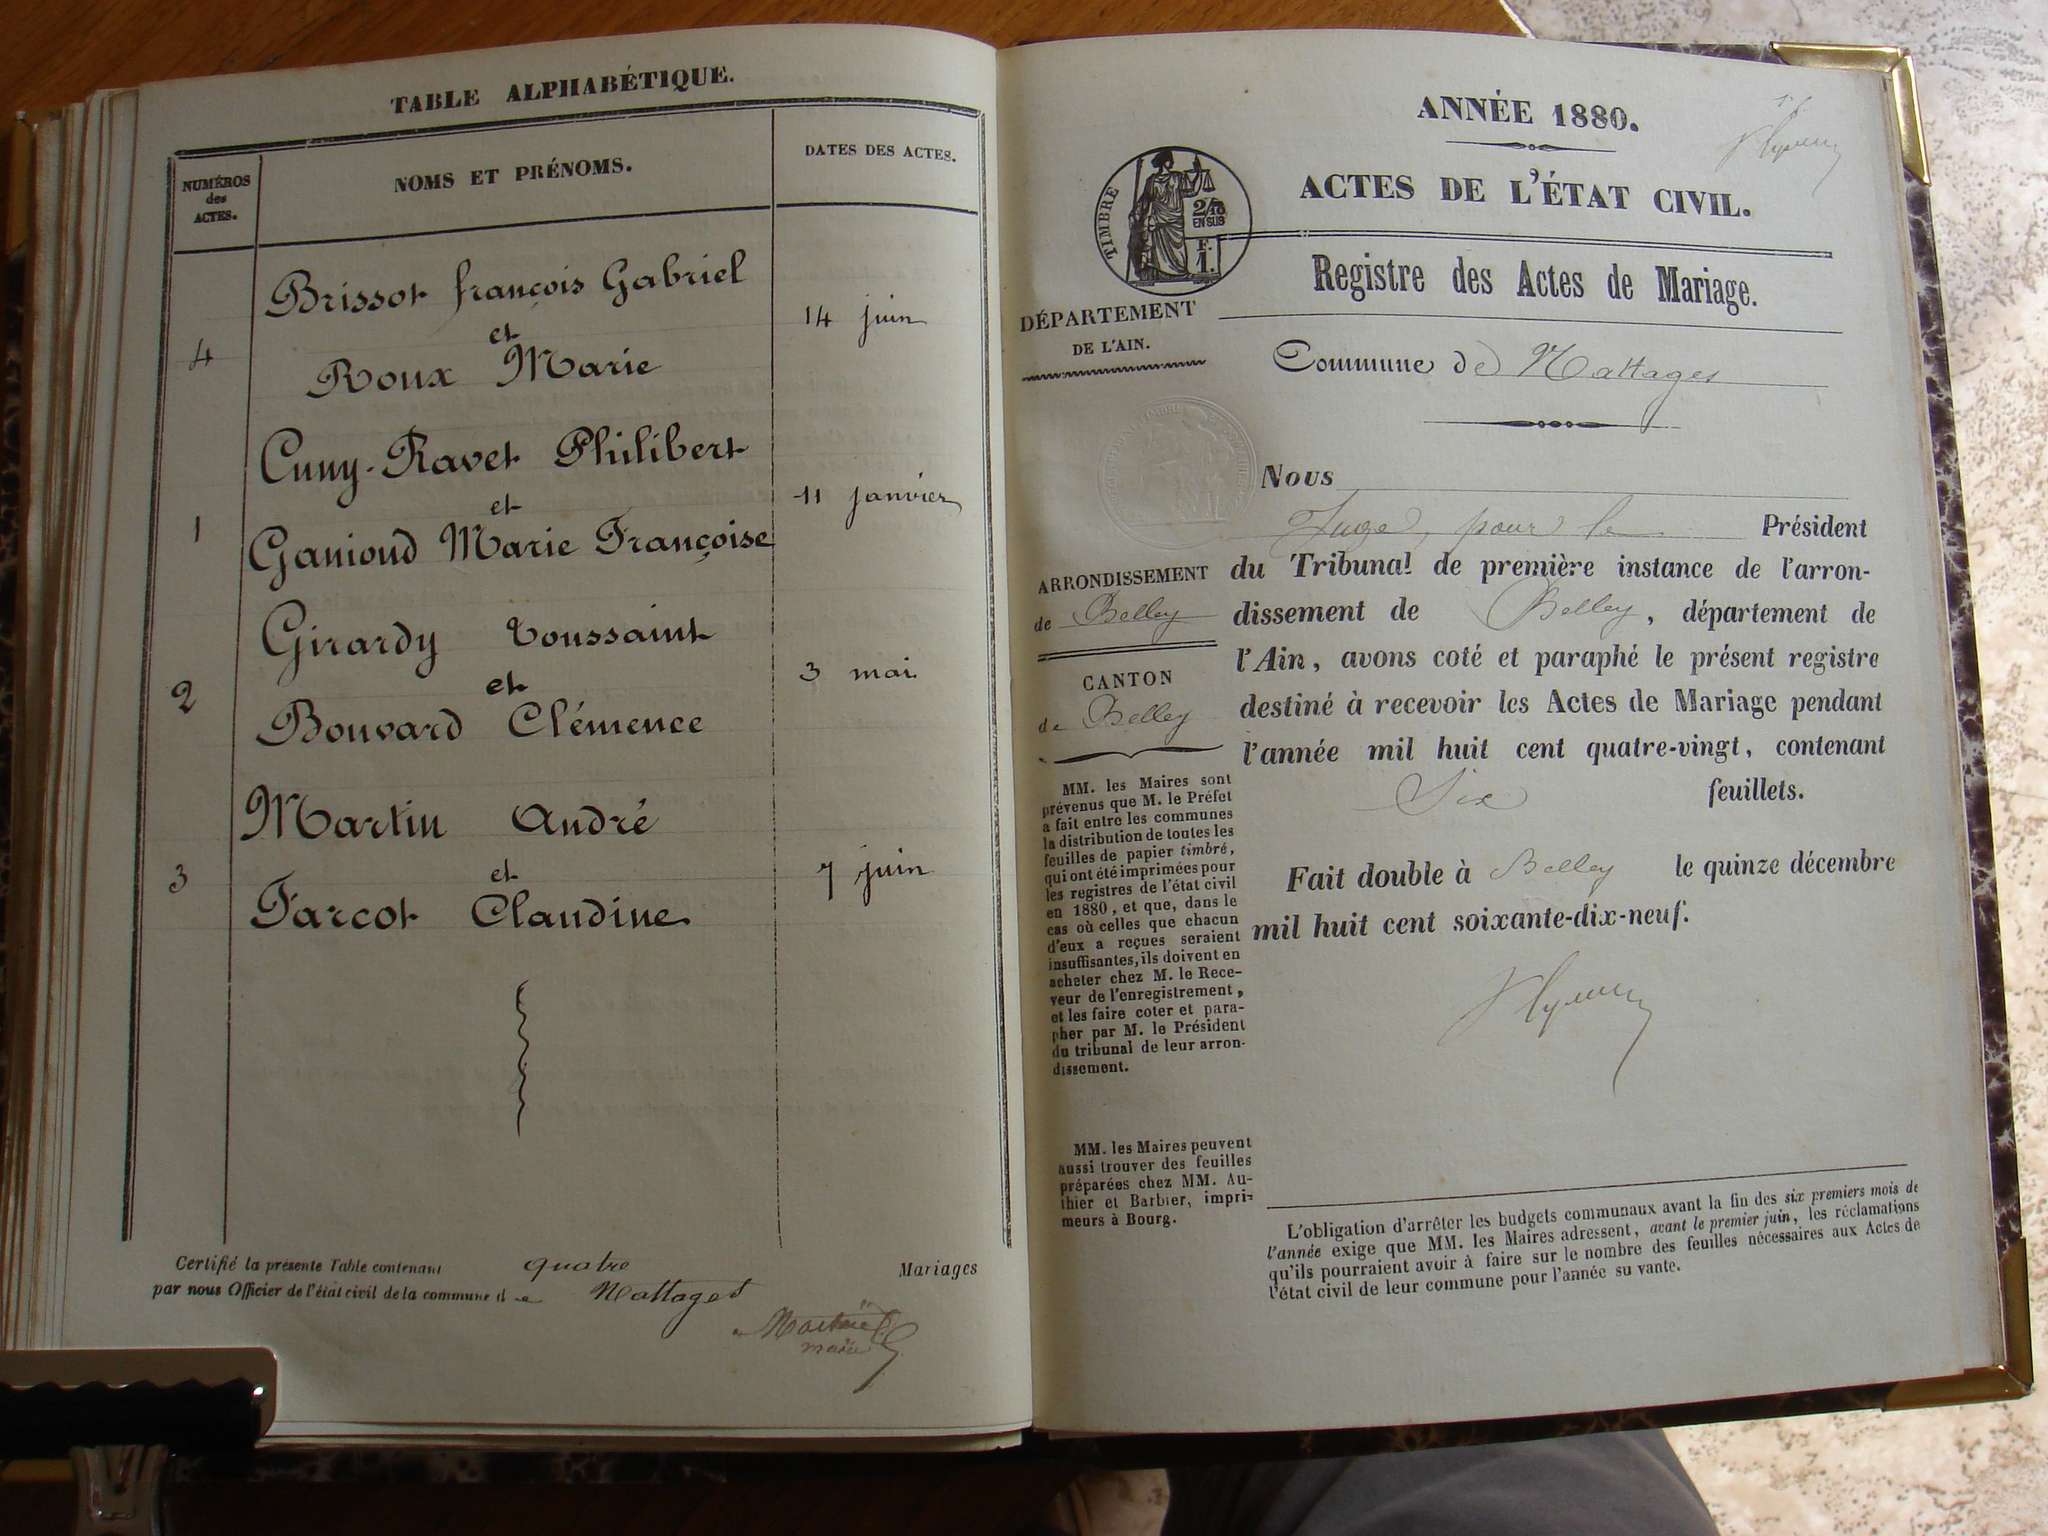 TABLE ALPHABÉTIQUE.
NUMÉROS
des
ACTES.
NOMS ET PRÉNOMS.
DATES DES ACTES.
Brissot françois Gabriel
et
4
Roux Marie
14 juin
Cuny-Ravet Philibert
et
1
Ganioud Marie Françoise
11 janvier
Girardy Toussaint
et
2
Bouvard Clémence
3 mai
Martin André
et
3
Farcot Claudine
7 juin
Certifié la présente Table contenant quatre Mariages
par nous Officier de l'état civil de la commune de Nattages
maire
ANNÉE 1880.
ACTES DE L'ÉTAT CIVIL.
TIMBRE
2/10
EN SUS
F.
1.
Registre des Actes de Mariage.
DÉPARTEMENT
DE L'AIN.
Commune de Nattages
Nous
Juge, pour le Président
du Tribunal de première instance de l'arron-
dissement de Belley, département de
l'Ain, avons coté et paraphé le présent registre
destiné à recevoir les Actes de Mariage pendant
l'année mil huit cent quatre-vingt, contenant
Six feuillets.
Fait double à Belley le quinze décembre
mil huit cent soixante-dix-neuf.
ARRONDISSEMENT
de Belley
CANTON
de Belley
MM. les Maires sont
prévenus que M. le Préfet
a fait entre les communes
la distribution de toutes les
feuilles de papier timbré,
qui ont été imprimées pour
les registres de l'état civil
en 1880, et que, dans le
cas où celles que chacun
d'eux a reçues seraient
insuffisantes, ils doivent en
acheter chez M. le Rece-
veur de l'enregistrement,
et les faire coter et para-
pher par M. le Président
du tribunal de leur arron-
dissement.
MM. les Maires peuvent
aussi trouver des feuilles
préparées chez MM. Au-
thier et Barbier, impri-
meurs à Bourg.
L'obligation d'arrêter les budgets communaux avant la fin des six premiers mois de
l'année exige que MM. les Maires adressent, avant le premier juin, les réclamations
qu'ils pourraient avoir à faire sur le nombre des feuilles nécessaires aux Actes de
l'état civil de leur commune pour l'année su vante.